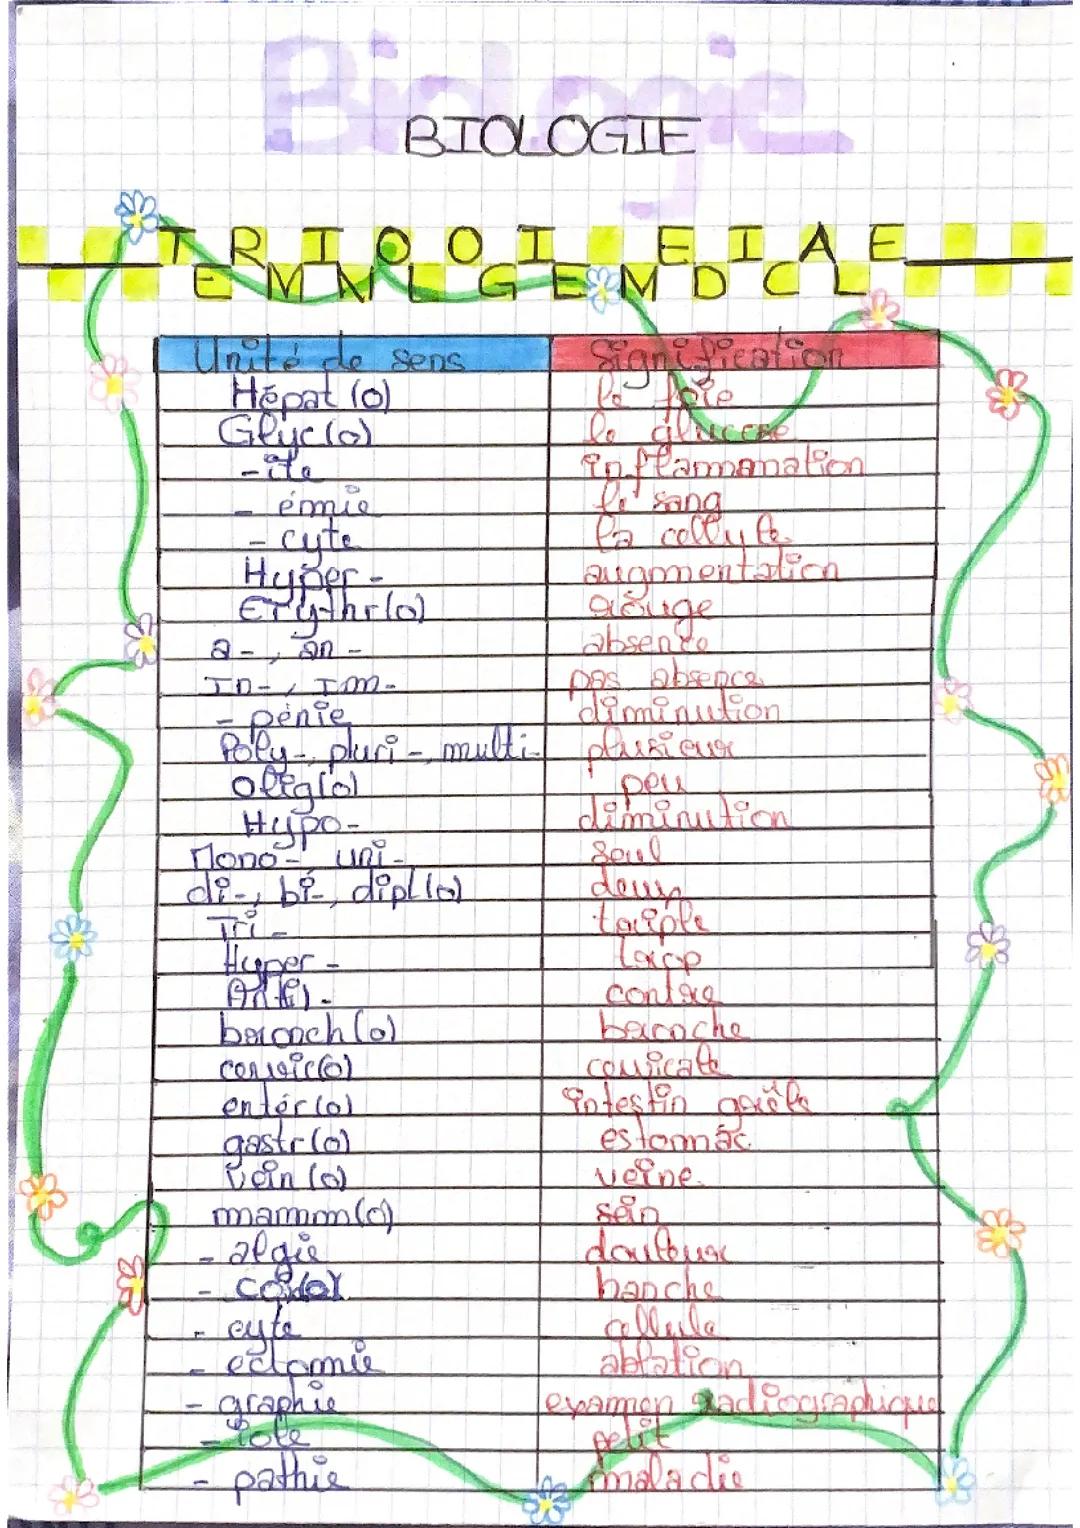 Biologie
BIOLOGIE
TERMINOLOGIE MEDICALE
Unité de sens Signification
Hépat (o) le foie
Glyc(o) le glucose
-ite inflammamation
- émie le sang
- cyte la cellule
Hyper - augmentation
Erythr(o) rouge
a-, an - absence
In-, Im- pas absence
- pénie diminution
Poly-, pluri-, multi- plusieur
Olig(o) peu
Hypo- diminution
Mono- uni- seul
di-, bi-, dipl(o) deux
Tri - triple
Hyper - trop
Ant(i) - contre
bronch(o) bronche
cervic(o) cervicale
entér(o) intestin grêle
gastr(o) estomac
vein (o) veine
mamm(o) sein
- algie douleur
- cox(o) hanche
- cyte cellule
- ectomie ablation
- graphie examen radiographique
- iole petit
- pathie maladie